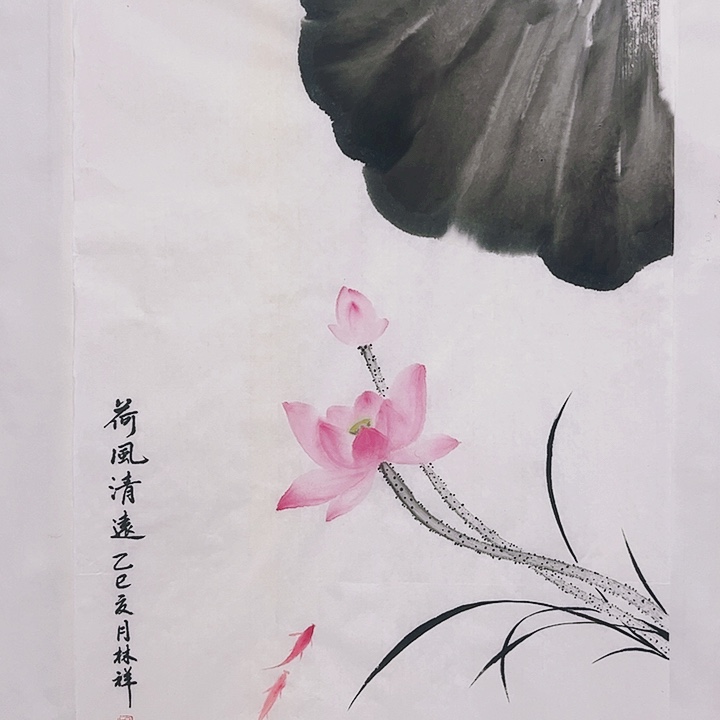 荷風清遠乙巳亥月林祥